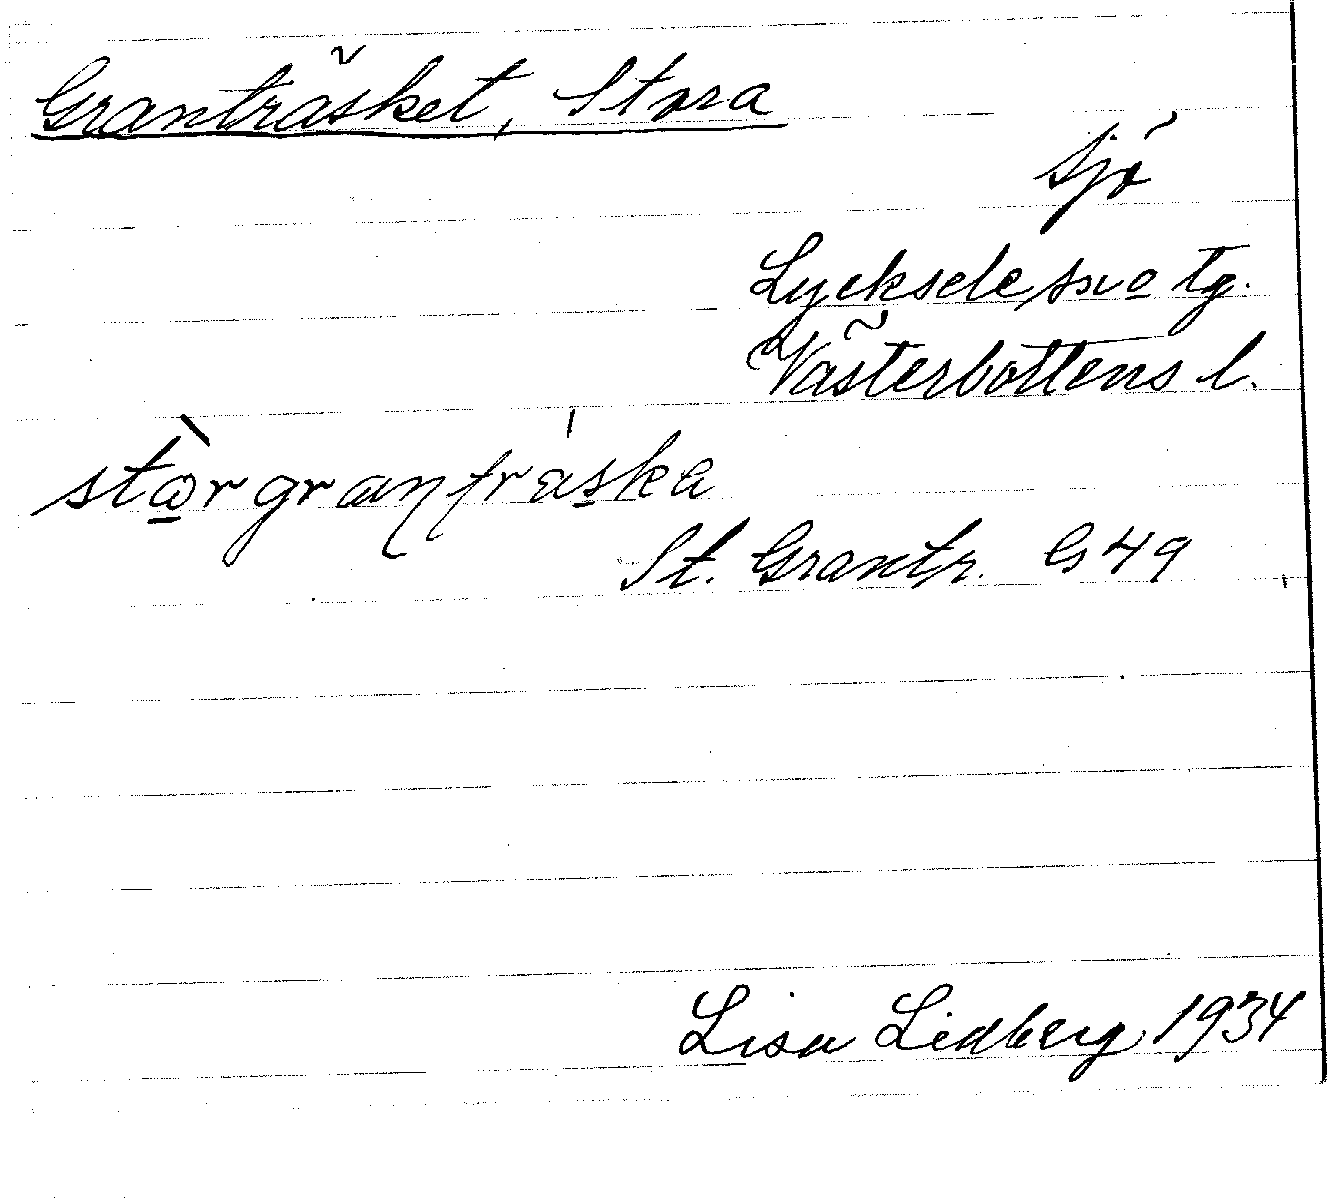 Granträsket, Stora
sjö
Lycksele sno tg.
Västerbottens l.
stòrgranträska
St. Grantr. G 49
Lisa Lidberg 1934